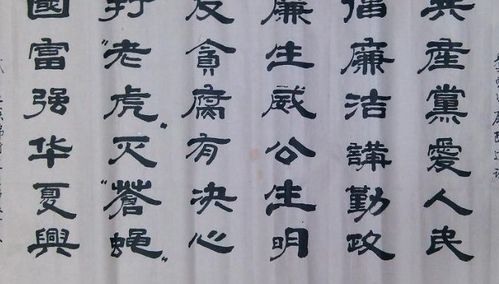 共產黨愛人民
倡廉洁講勤政
廉生威公生明
反貪腐有决心
打“老虎”灭“蒼蝇”
國富强华夏興